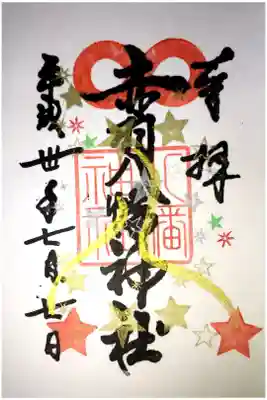 奉拝
赤羽八幡神社
平成卅年七月七日
八幡
神社